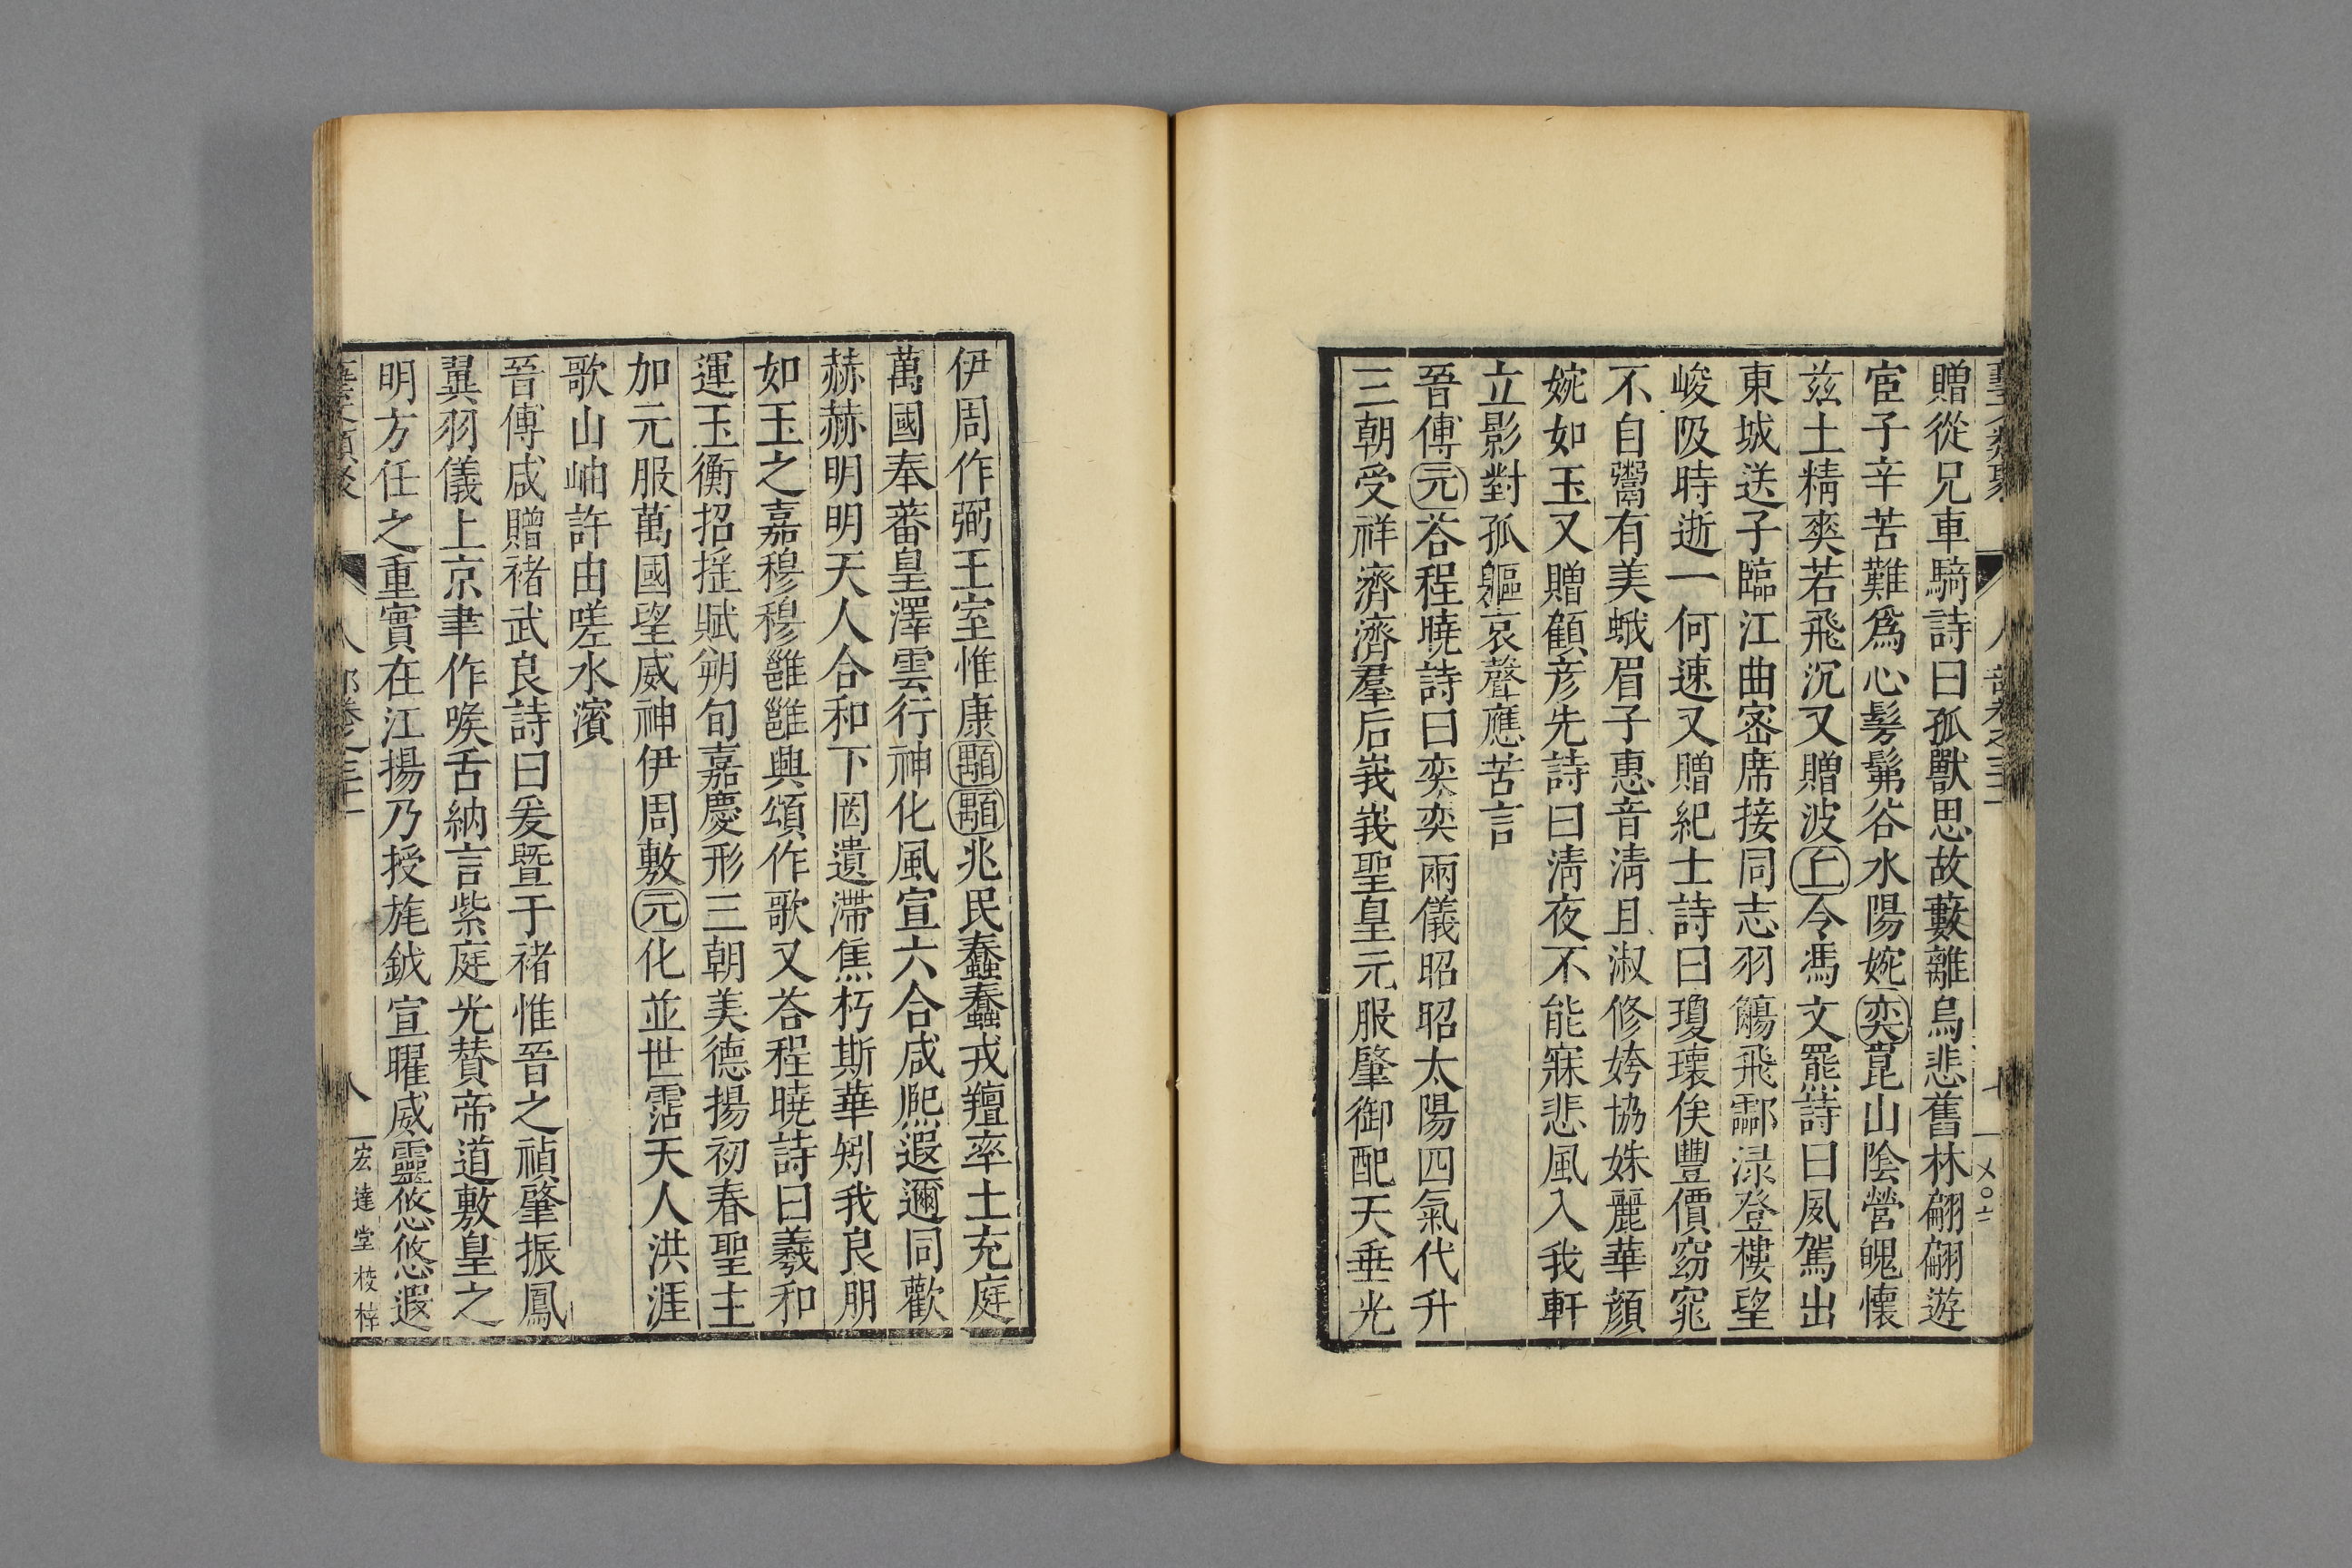 贈從兄車騎詩曰孤獸思故藪離鳥悲舊林翩翩遊
宦子辛苦難爲心髣髴谷水陽婉奕崑山陰營魄懷
茲土精爽若飛沉又贈波上令馮文羆詩曰夙駕出
東城送子臨江曲密席接同志羽觴飛酃淥登樓望
峻阪時逝一何速又贈紀士詩曰瓊瓌俟豐價窈窕
不自鬻有美蛾眉子惠音淸且淑修姱協姝麗華顔
婉如玉又贈顧彦先詩曰淸夜不能寐悲風入我軒
立影對孤軀哀聲應苦言
晉傅元荅程曉詩曰奕奕兩儀昭昭太陽四氣代升
三朝受祥濟濟羣后峩峩聖皇元服肇御配天垂光
伊周作弼王室惟康顒顒兆民蠢蠢戎羶率土充庭
萬國奉蕃皇澤雲行神化風宣六合咸熙遐邇同歡
赫赫明明天人合和下罔遺滯焦朽斯華矧我良朋
如玉之嘉穆穆雝雝興頌作歌又荅程曉詩曰羲和
運玉衡招揺賦朔旬嘉慶形三朝美德揚初春聖主
加元服萬國望威神伊周敷元化並世霑天人洪涯
歌山岫許由嗟水濱
晉傅咸贈褚武良詩曰爰曁于褚惟晉之禎肇振鳳
翼羽儀上京聿作喉舌納言紫庭光贊帝道敷皇之
明方任之重實在江揚乃授旄鉞宣曜威靈悠悠遐
八 宏達堂校梓